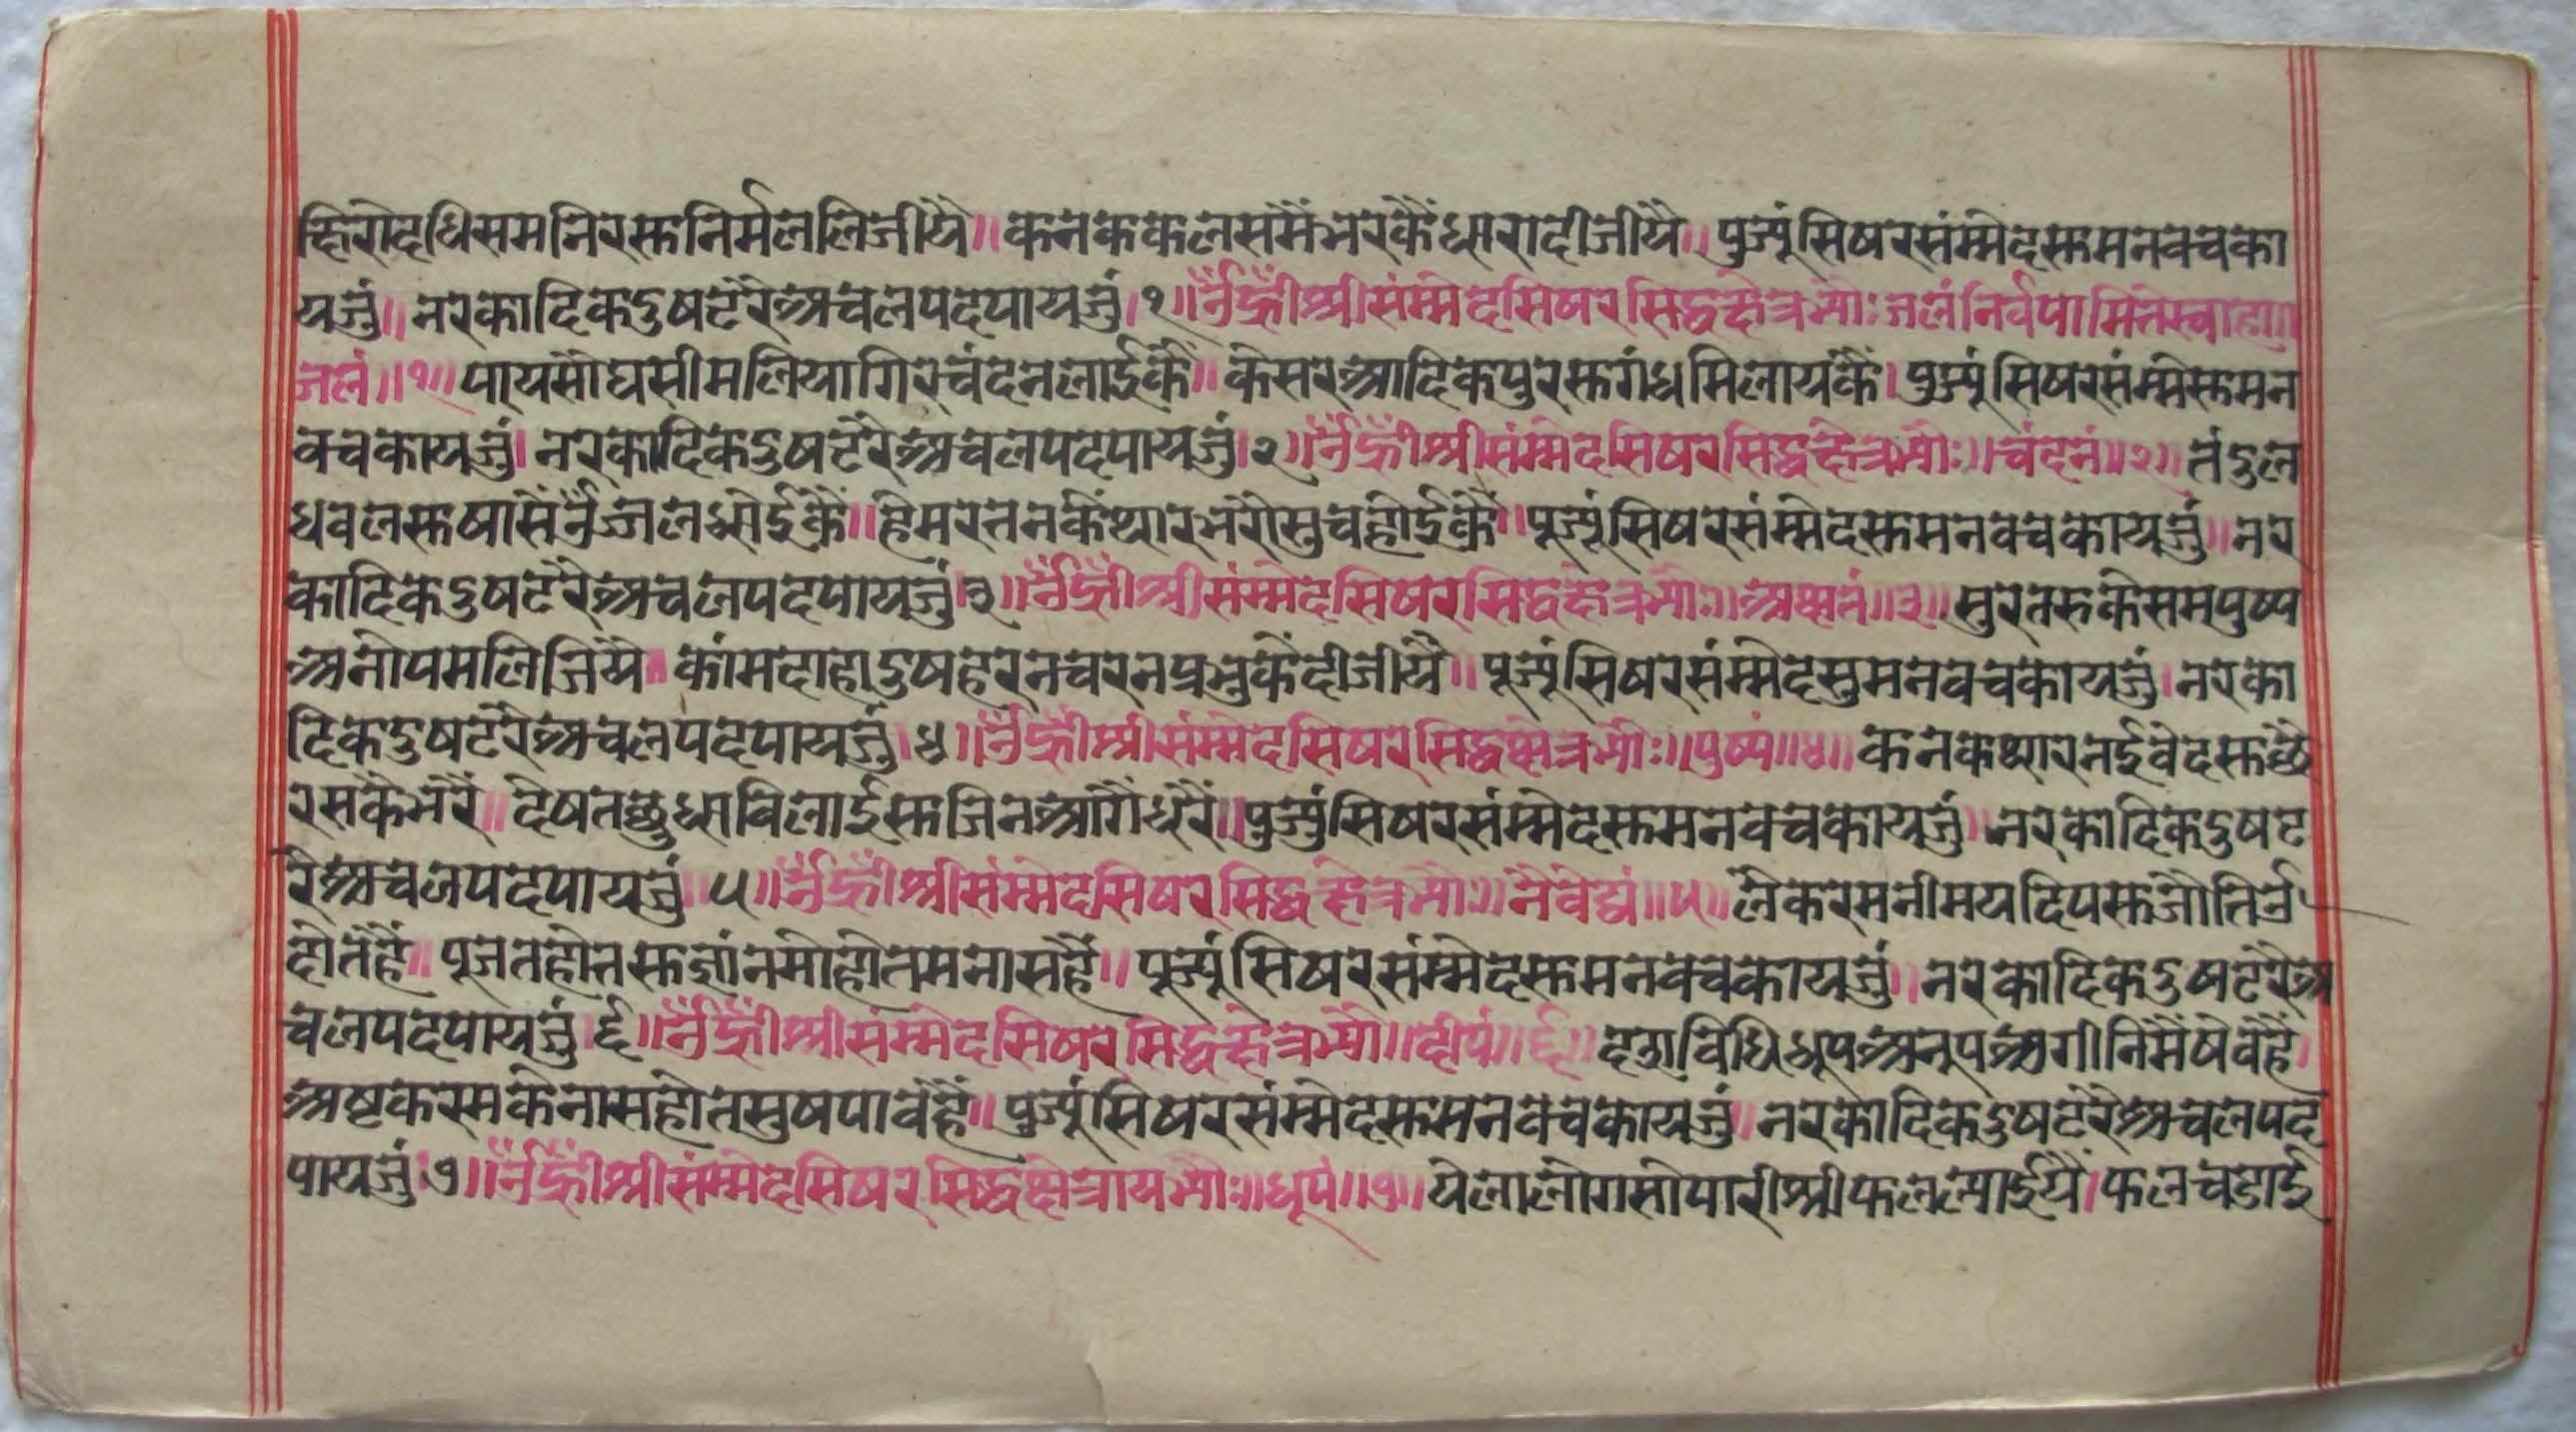 क्षिरोदधिसमनिरस्तनिर्मललिजीयै॥ कनककलसमैंभरकैंधारादीजीयै॥ पुज्यूंसिषरसंम्मेदस्तमनवचका
यजुं॥ नरकादिकदुषटरैअचलपदपायजुं।१॥ ॐह्रींश्रीसंम्मेदसिषरसिद्धक्षेत्रभ्योः जलंनिर्वपामितेस्वाहा॥
जलं॥१॥ पायसोघसीमलियागिरचंदनलाईकैं॥ केसरआदिकपुरस्तगंधमिलायकैं। पुज्यूंसिषरसंम्मेस्तमन
वचकायजुं। नरकादिकदुषटरैअचलपदपायजुं।२॥ ॐह्रींश्रीसंम्मेदसिषरसिद्धक्षेत्रभ्योः॥ चंदनं॥२॥ तंदुल
धवलस्तषासउंज्जलधोईकैं॥ हेमरतनकेंथारभरोसुचहोईकैं॥ पूज्यूंसिषरसंम्मेदस्तमनवचकायजुं॥ नर
कादिकदुषटरैअचलपदपायजुं।३॥ ॐह्रींश्रीसंम्मेदसिषरसिद्धक्षेत्रभ्योः॥ अक्षतं॥३॥ सुरतरुकेसमपुष्प
अनोपमलिजियै॥ कांमदाहादुषहरनचरनप्रभुकैंदीजीयै॥ पूज्यूंसिषरसंम्मेदसुमनवचकायजुं। नरका
दिकदुषटरैअचलपदपायजुं।४॥ ॐह्रींश्रीसंम्मेदसिषरसिद्धक्षेत्रभ्योः॥ पुष्पं॥४॥ कनकथारनईवेदस्तछे
रसकैभरैं॥ देषतछुधाविलाईस्तजिनआगैंधरैं॥ पुज्युंसिषरसंम्मेदस्तमनवचकायजुं। नरकादिकदुषट
रैअचलपदपायजुं।५॥ ॐह्रींश्रीसंम्मेदसिषरसिद्धक्षेत्रभ्योः॥ नैवेद्यं॥५॥ लेकरमनीमयदिपस्तजौतिउ
होतहैं॥ पूजतहोतस्तज्ञांनमोहोतमनासहैं॥ पूज्यूंसिषरसंम्मेदस्तमनवचकायजुं। नरकादिकदुषटरैअ
चलपदपायजुं।६॥ ॐह्रींश्रीसंम्मेदसिषरसिद्धक्षेत्रभ्यो॥ दीपं॥६॥ दसविधिधूपअनुपअगीनिमैंषेवेहैं।
अष्टकरमकेनासहोतसुषपावेहैं॥ पुज्यूंसिषरसंम्मेदस्तमनवचकायजुं। नरकादिकदुषटरैअचलपद
पायजुं।७॥ ॐह्रींश्रीसंम्मेदसिषरसिद्धक्षेत्रायभ्योः॥ धूपं॥७॥ येलालोगसोपारीश्रीफलल्याईयै। फलचडाई